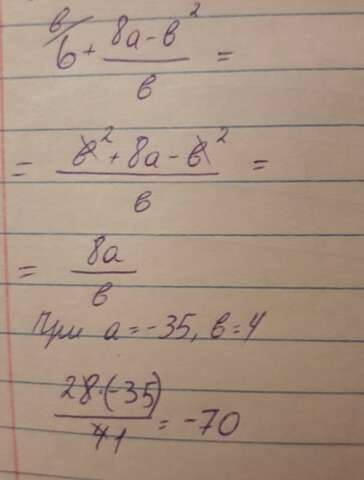 в/ b + (8a - в²)/в =
= (в² + 8a - в²)/в =
= 8a/в
При a = -35, в = 4
28·(-35)/41 = -70